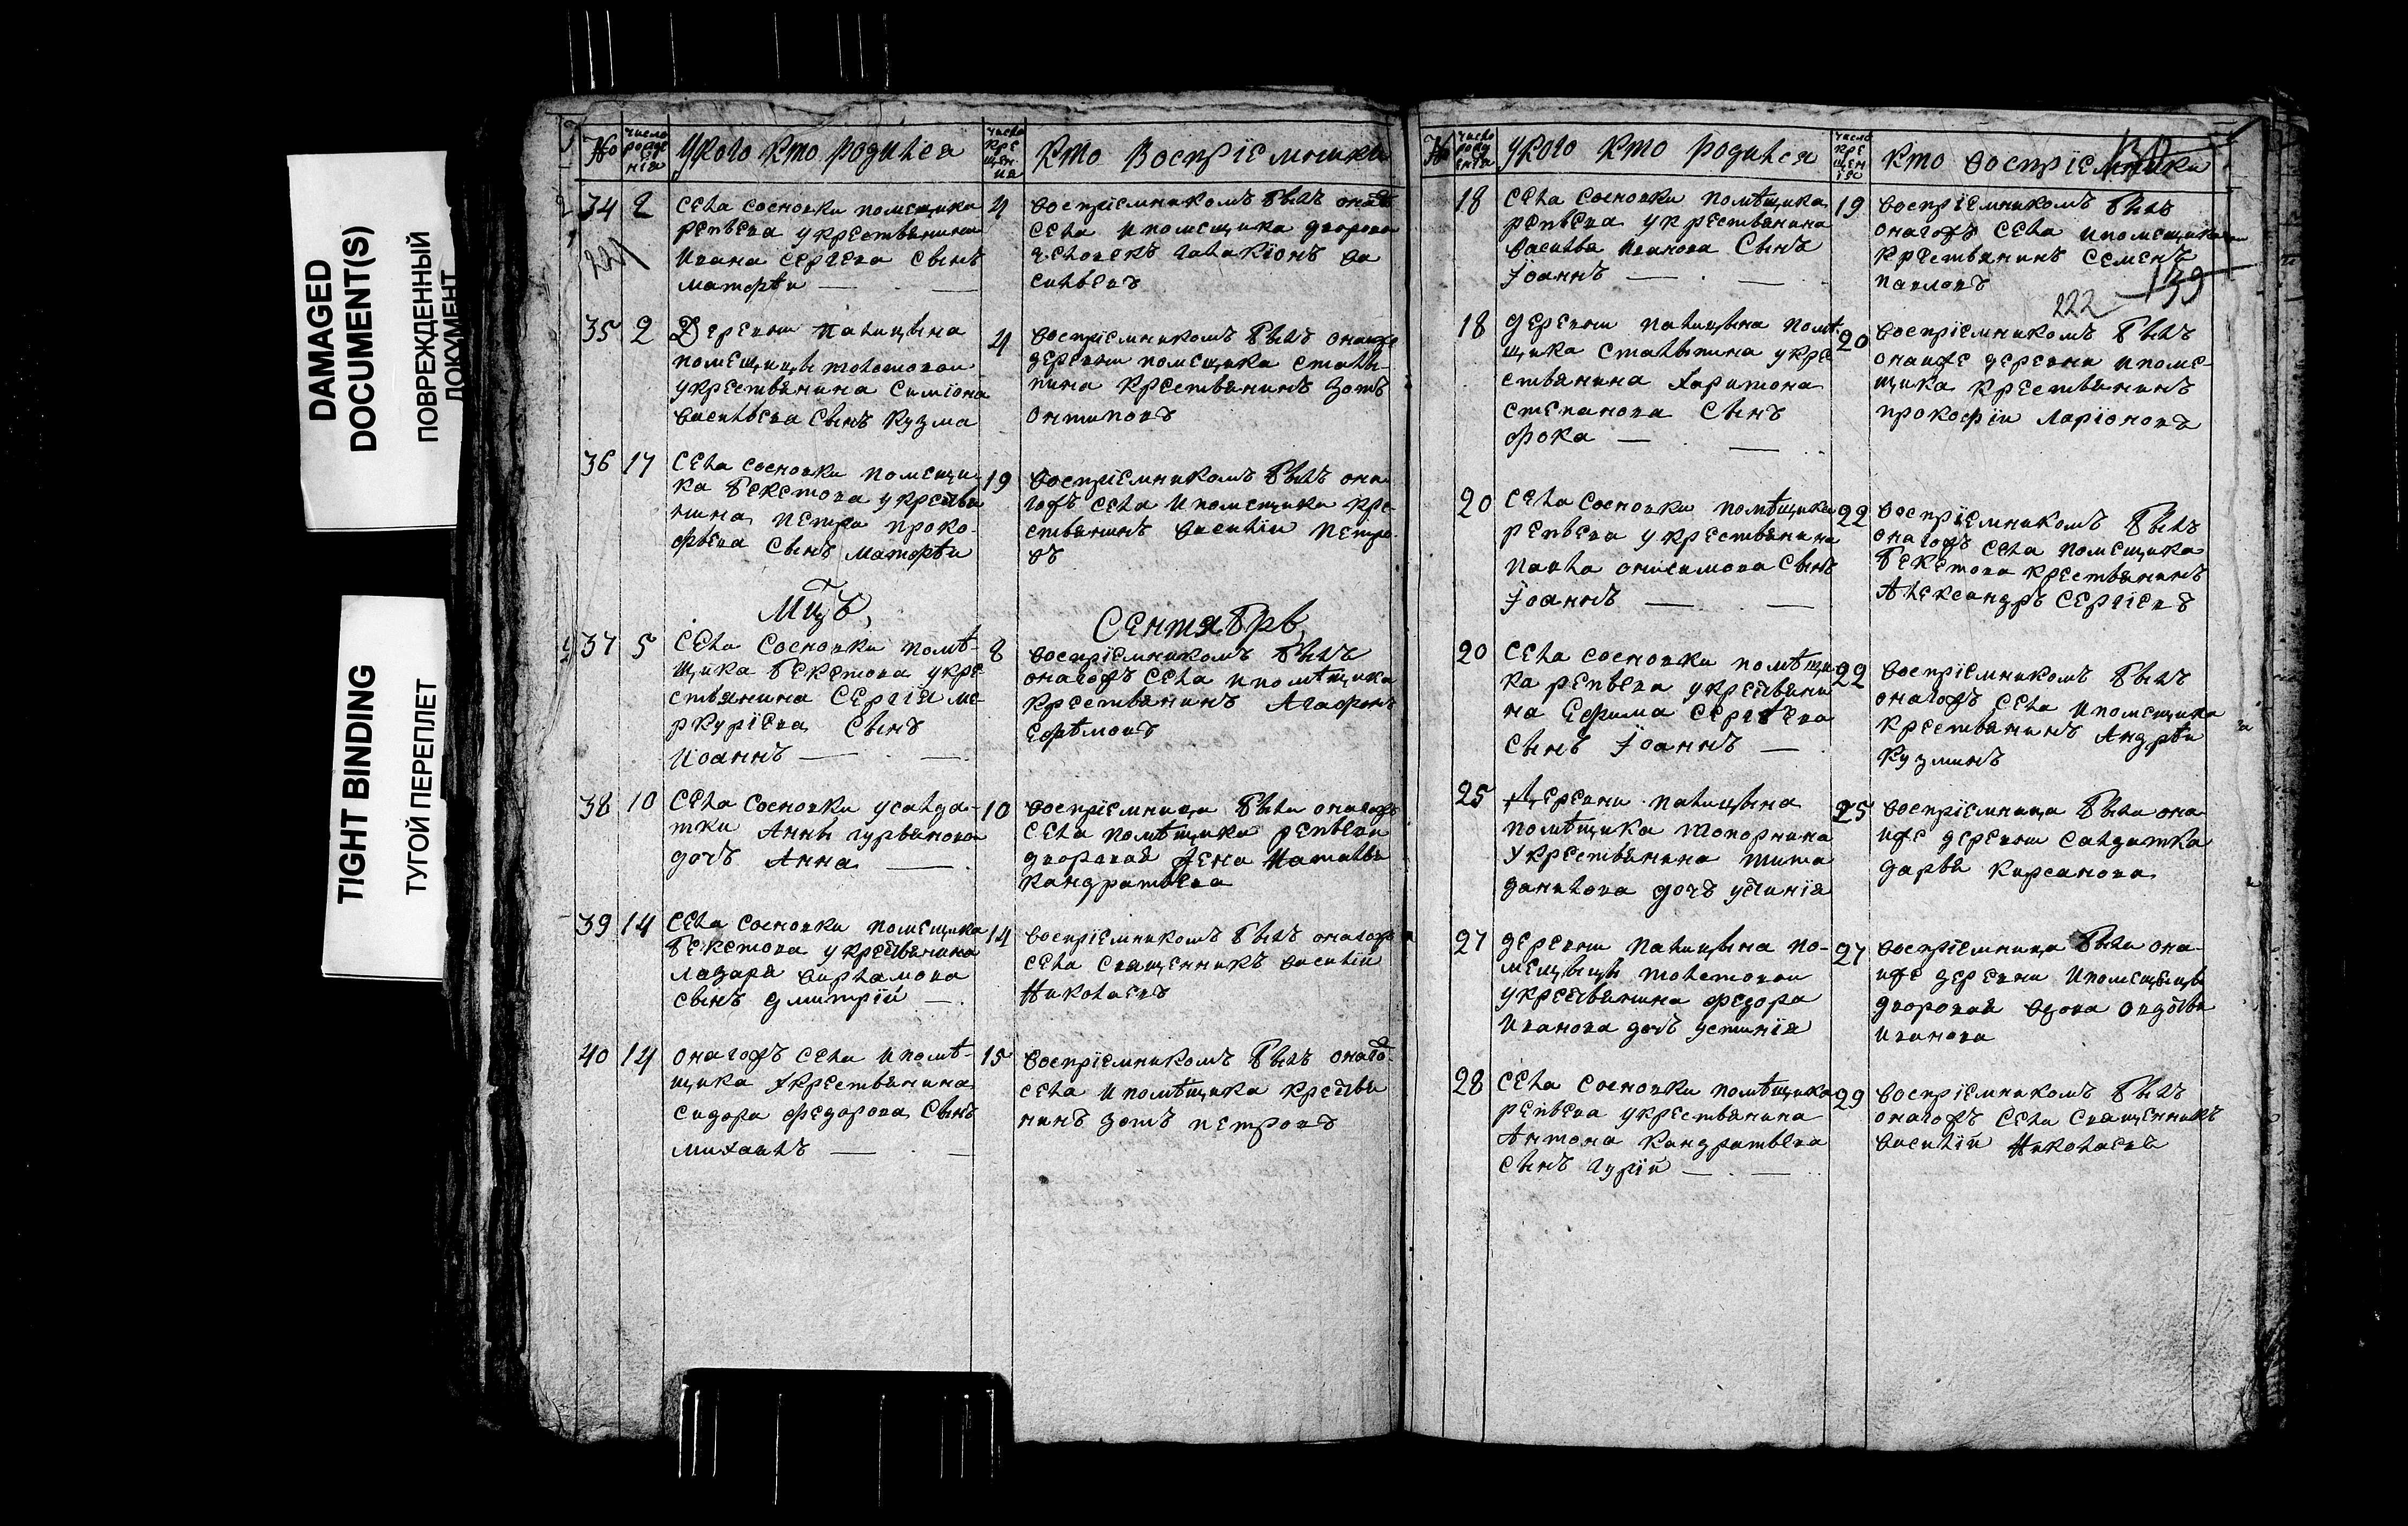 DAMAGED
DOCUMENT(S)
ПОВРЕЖДЕННЫЙ
ДОКУМЕНТ
TIGHT BINDING
ТУГОЙ ПЕРЕПЛЕТ
№
число рождения
У кого кто родился
число крещения
Кто восприемники
34 2
села Сосновки помещика
Репьева у крестьянина
Ивана Сергеева сынъ
Матфѣи
4
восприемникомъ былъ
села и помещика дворовои
человекъ Галакионъ Ва
сильевъ
221
35 2
Деревни Палицына
помещицы Толстовои
у крестьянина Симиона
Васильева сынъ Кузма
4
восприемникомъ былъ онаиже
деревни помещика Столы-
пина крестьянинъ Зотъ
Онтиповъ
36 17
села Сосновки помещи-
ка Бекетова у крестья
нина Петра Проко-
фьева сынъ Матфѣи
19
восприемникомъ былъ она
гожъ села и помещика кре-
стьянинъ Василіи Петро-
въ
Мцъ
Сентябрь
37 5
села Сосновки помѣ-
щика Бекетова у кре
стьянина Сергія Ме-
ркуріева сынъ
Иоаннъ
8
восприемникомъ былъ
онагожъ села и помѣщика
крестьянинъ Агафонъ
Ефѣмовъ
38 10
села Сосновки у салда-
тки Анны Гурьяновои
дочь Анна
10
восприемница была онагожъ
села помѣщика Репьева
дворовая жена Наталья
Кандратьева
39 14
села Сосновки помещика
Бекетова у крестьянина
Лазаря Варламова
сынъ Дмитрій
14
восприемникомъ былъ онагожъ
села священникъ Василій
Николаевъ
40 14
онагожъ села и помѣ-
щика у крестьянина
Сидора Федорова сынъ
Михаилъ
15
восприемникомъ былъ онаго
села и помѣщика крестья
нинъ Зотъ Петровъ
№
число рождения
У кого кто родился
число крещения
Кто восприемники
18
села Сосновки помѣщика
Репьева у крестьянина
Василья Иванова сынъ
Іоаннъ
19
восприемникомъ былъ
онагожъ села и помещика
крестьянинъ Семенъ
Павловъ
139
222
18
деревни Палицына помѣ-
щика Столыпина у кре
стьянина Харитона
Степанова сынъ
Фока
20
восприемникомъ былъ
онаиже деревни и поме-
щика крестьянинъ
Прокофіи Ларіоновъ
20
села Сосновки помѣщика
Репьева у крестьянина
Павла Онисимова сынъ
Іоаннъ
22
восприемникомъ былъ
онагожъ села помещика
Бекетова крестьянинъ
Александръ Сергіевъ
20
села Сосновки помѣщи-
ка Репьева у крестьяни
на Ефима Сергѣева
сынъ Іоаннъ
22
восприемникомъ былъ
онагожъ села и помещика
крестьянинъ Андрѣи
Кузминъ
25
Деревни Палицына
помѣщика Топорнина
у крестьянина Тита
Данилова дочь Устинія
25
восприемница была она-
иже деревни салдатка
Дарья Кирсанова
27
деревни Палицына по-
мещицы Толстовои
у крестьянина Федора
Иванова дочь Устинія
27
восприемница была она-
иже деревни и помещицы
дворовая вдова Овдотья
Иванова
28
села Сосновки помѣщика
Репьева у крестьянина
Антона Кандратьева
сынъ Гурій
29
восприемникомъ былъ
онагожъ села священникъ
Василій Николаевъ